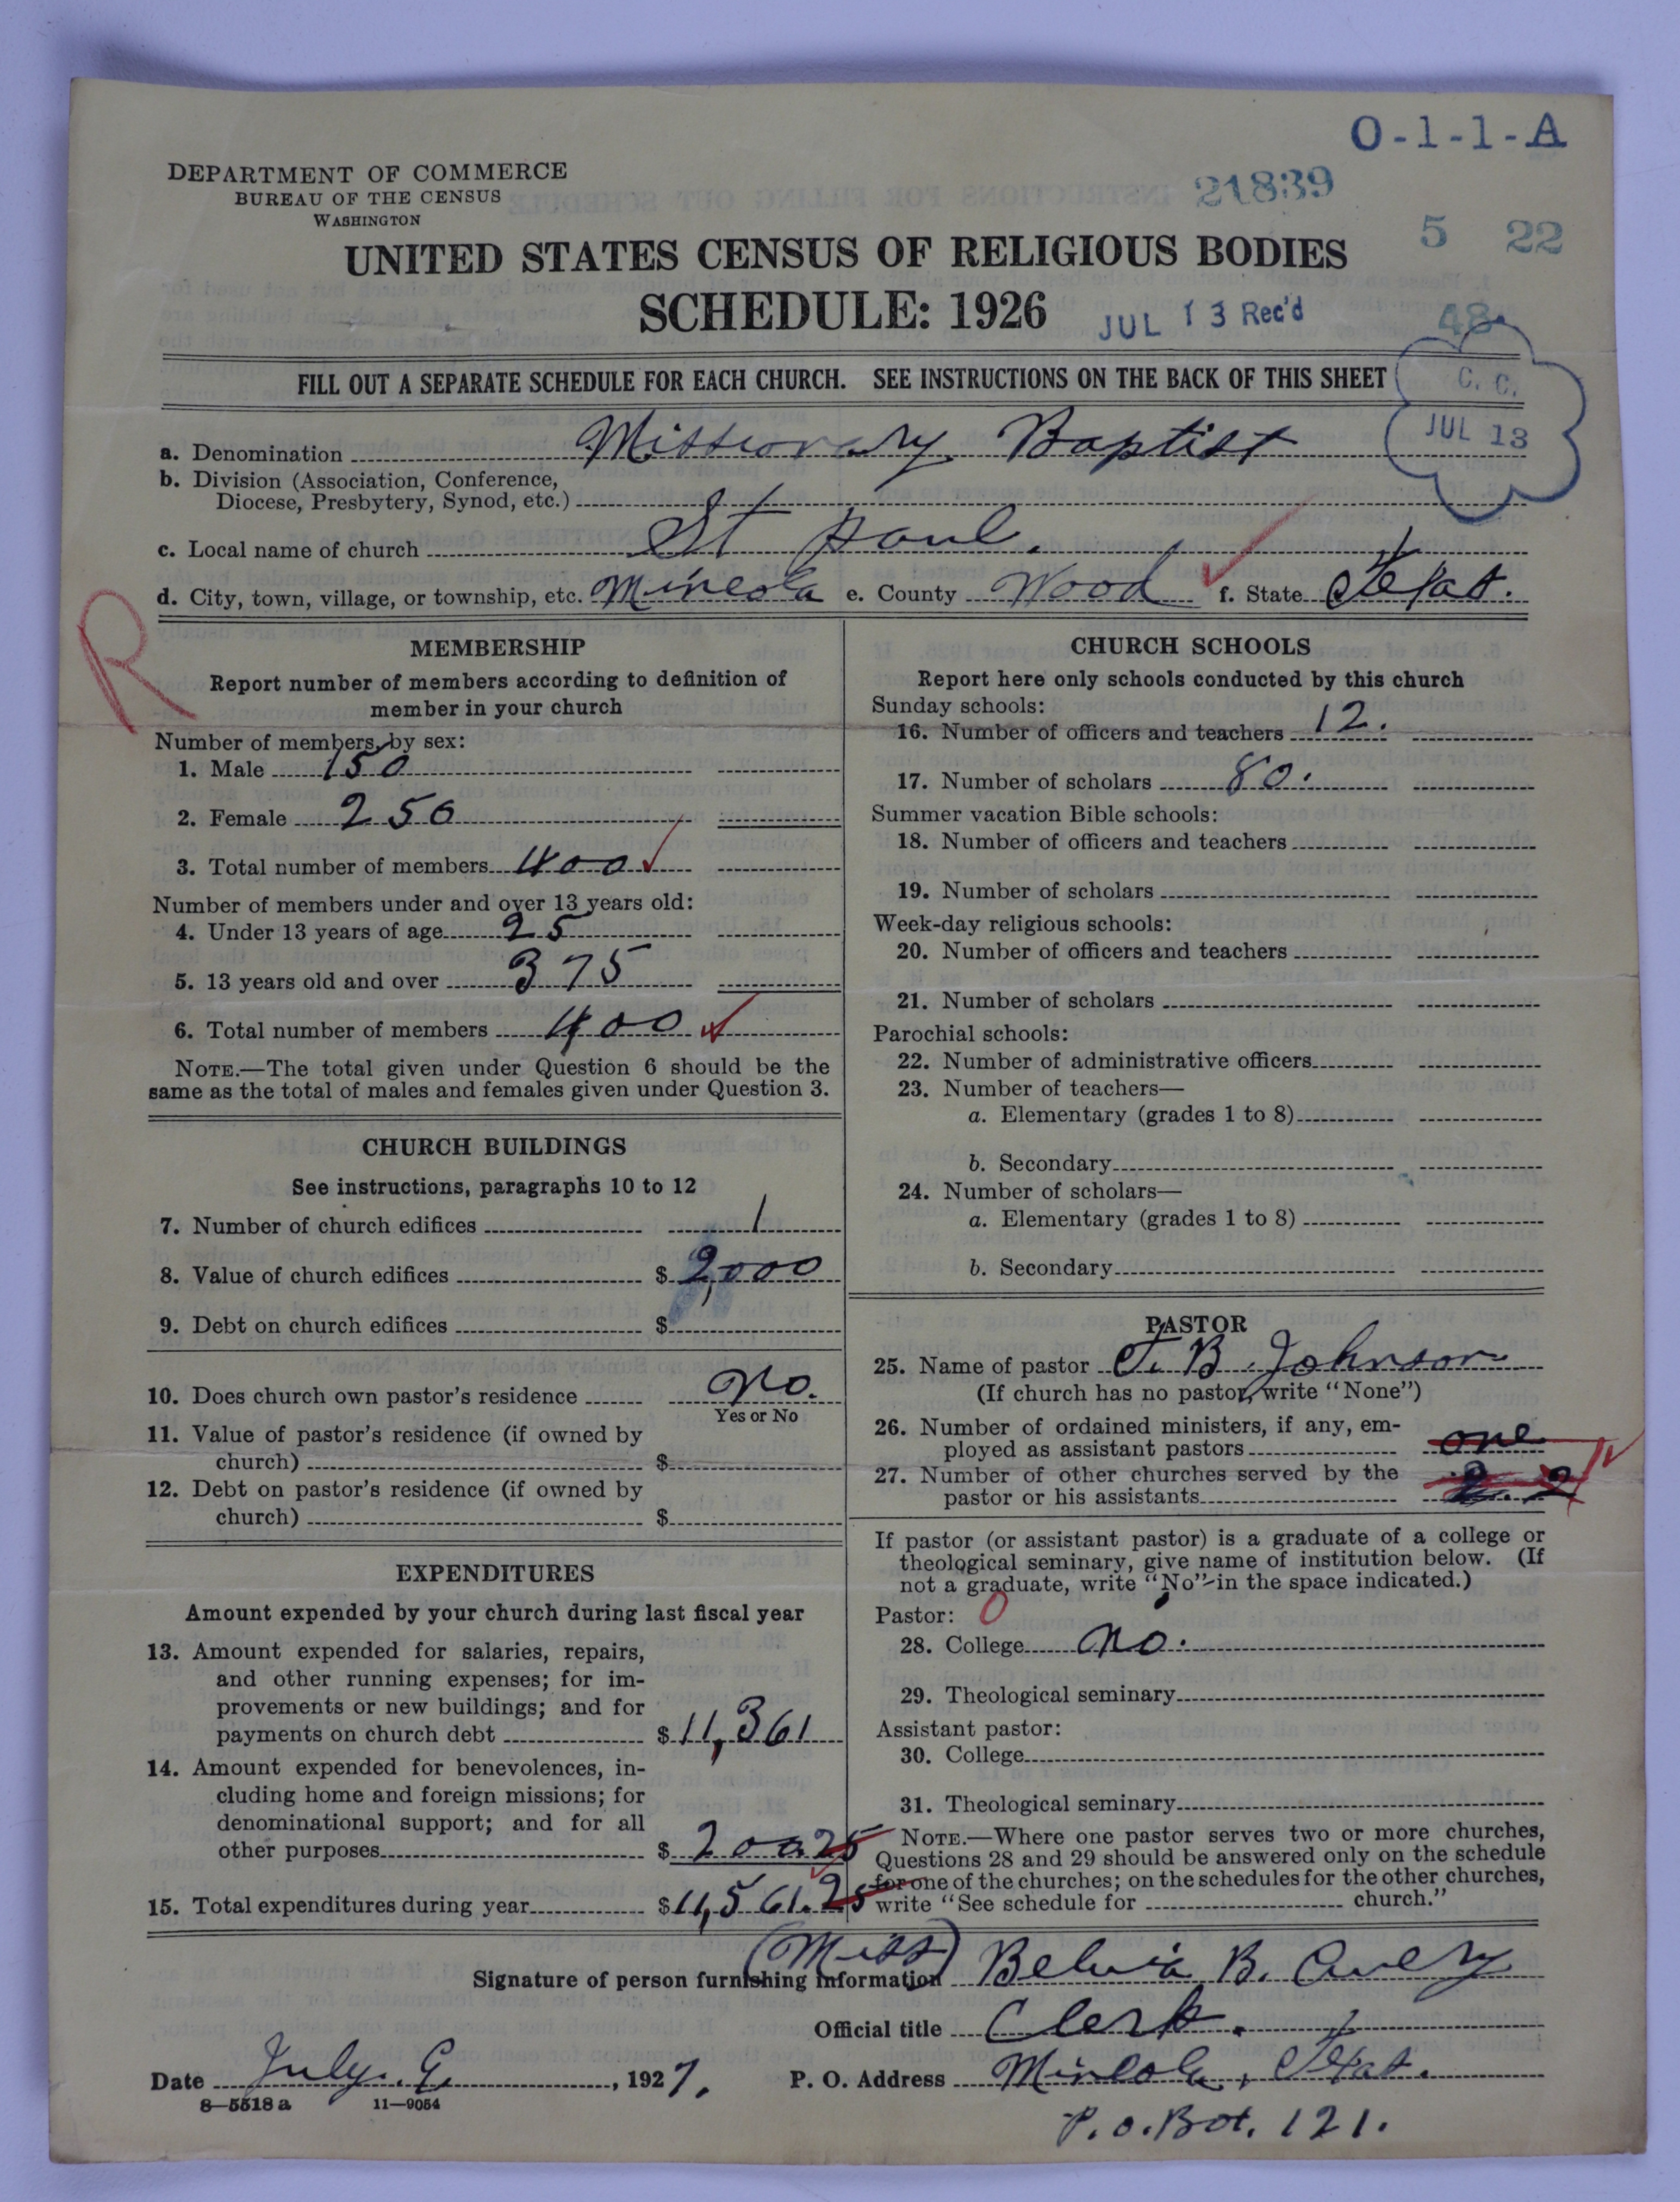 O-1-1-A
DEPARTMENT OF COMMERCE
BUREAU OF THE CENSUS
WASHINGTON
21839
5 22
UNITED STATES CENSUS OF RELIGIOUS BODIES
SCHEDULE: 1926
JUL 13 Rec'd
48
FILL OUT A SEPARATE SCHEDULE FOR EACH CHURCH. SEE INSTRUCTIONS ON THE BACK OF THIS SHEET
C. C.
JUL 13
a. Denomination Missionary Baptist
b. Division (Association, Conference,
Diocese, Presbytery, Synod, etc.)
c. Local name of church St Paul.
d. City, town, village, or township, etc. Mineola e. County Wood f. State Texas.
R
MEMBERSHIP
Report number of members according to definition of
member in your church
Number of members, by sex:
1. Male 150
2. Female 250
3. Total number of members 400
Number of members under and over 13 years old:
4. Under 13 years of age 25
5. 13 years old and over 375
6. Total number of members 400
NOTE.—The total given under Question 6 should be the
same as the total of males and females given under Question 3.
CHURCH BUILDINGS
See instructions, paragraphs 10 to 12
7. Number of church edifices 1
8. Value of church edifices $2,000
9. Debt on church edifices $
10. Does church own pastor's residence No.
Yes or No
11. Value of pastor's residence (if owned by
church) $
12. Debt on pastor's residence (if owned by
church) $
EXPENDITURES
Amount expended by your church during last fiscal year
13. Amount expended for salaries, repairs,
and other running expenses; for im-
provements or new buildings; and for
payments on church debt $11,361
14. Amount expended for benevolences, in-
cluding home and foreign missions; for
denominational support; and for all
other purposes $200.25
15. Total expenditures during year $11,561.25
CHURCH SCHOOLS
Report here only schools conducted by this church
Sunday schools:
16. Number of officers and teachers 12.
17. Number of scholars 80.
Summer vacation Bible schools:
18. Number of officers and teachers
19. Number of scholars
Week-day religious schools:
20. Number of officers and teachers
21. Number of scholars
Parochial schools:
22. Number of administrative officers
23. Number of teachers—
a. Elementary (grades 1 to 8)
b. Secondary
24. Number of scholars—
a. Elementary (grades 1 to 8)
b. Secondary
PASTOR
25. Name of pastor J. B. Johnson
(If church has no pastor, write "None")
26. Number of ordained ministers, if any, em-
ployed as assistant pastors one
27. Number of other churches served by the
pastor or his assistants 2. 2
If pastor (or assistant pastor) is a graduate of a college or
theological seminary, give name of institution below. (If
not a graduate, write "No" in the space indicated.)
Pastor: 0
28. College No.
29. Theological seminary
Assistant pastor:
30. College
31. Theological seminary
NOTE.—Where one pastor serves two or more churches,
Questions 28 and 29 should be answered only on the schedule
for one of the churches; on the schedules for the other churches,
write "See schedule for church."
Signature of person furnishing information (Miss) Belvia B. Avery
Official title Clerk.
Date July. 9. , 1927. P. O. Address Mineola, Texas.
8—5518 a 11—9054
P. O. Box. 121.